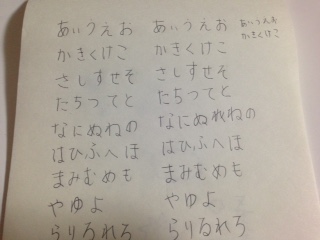 あいうえお
かきくけこ
さしすせそ
たちつてと
なにぬねの
はひふへほ
まみむめも
やゆよ
らりるれろ
あいうえお
かきくけこ
さしすせそ
たちつてと
なにぬれねの
はひふへほ
まみむめも
やゆよ
らりるれろ
あいうえお
かきくけこ